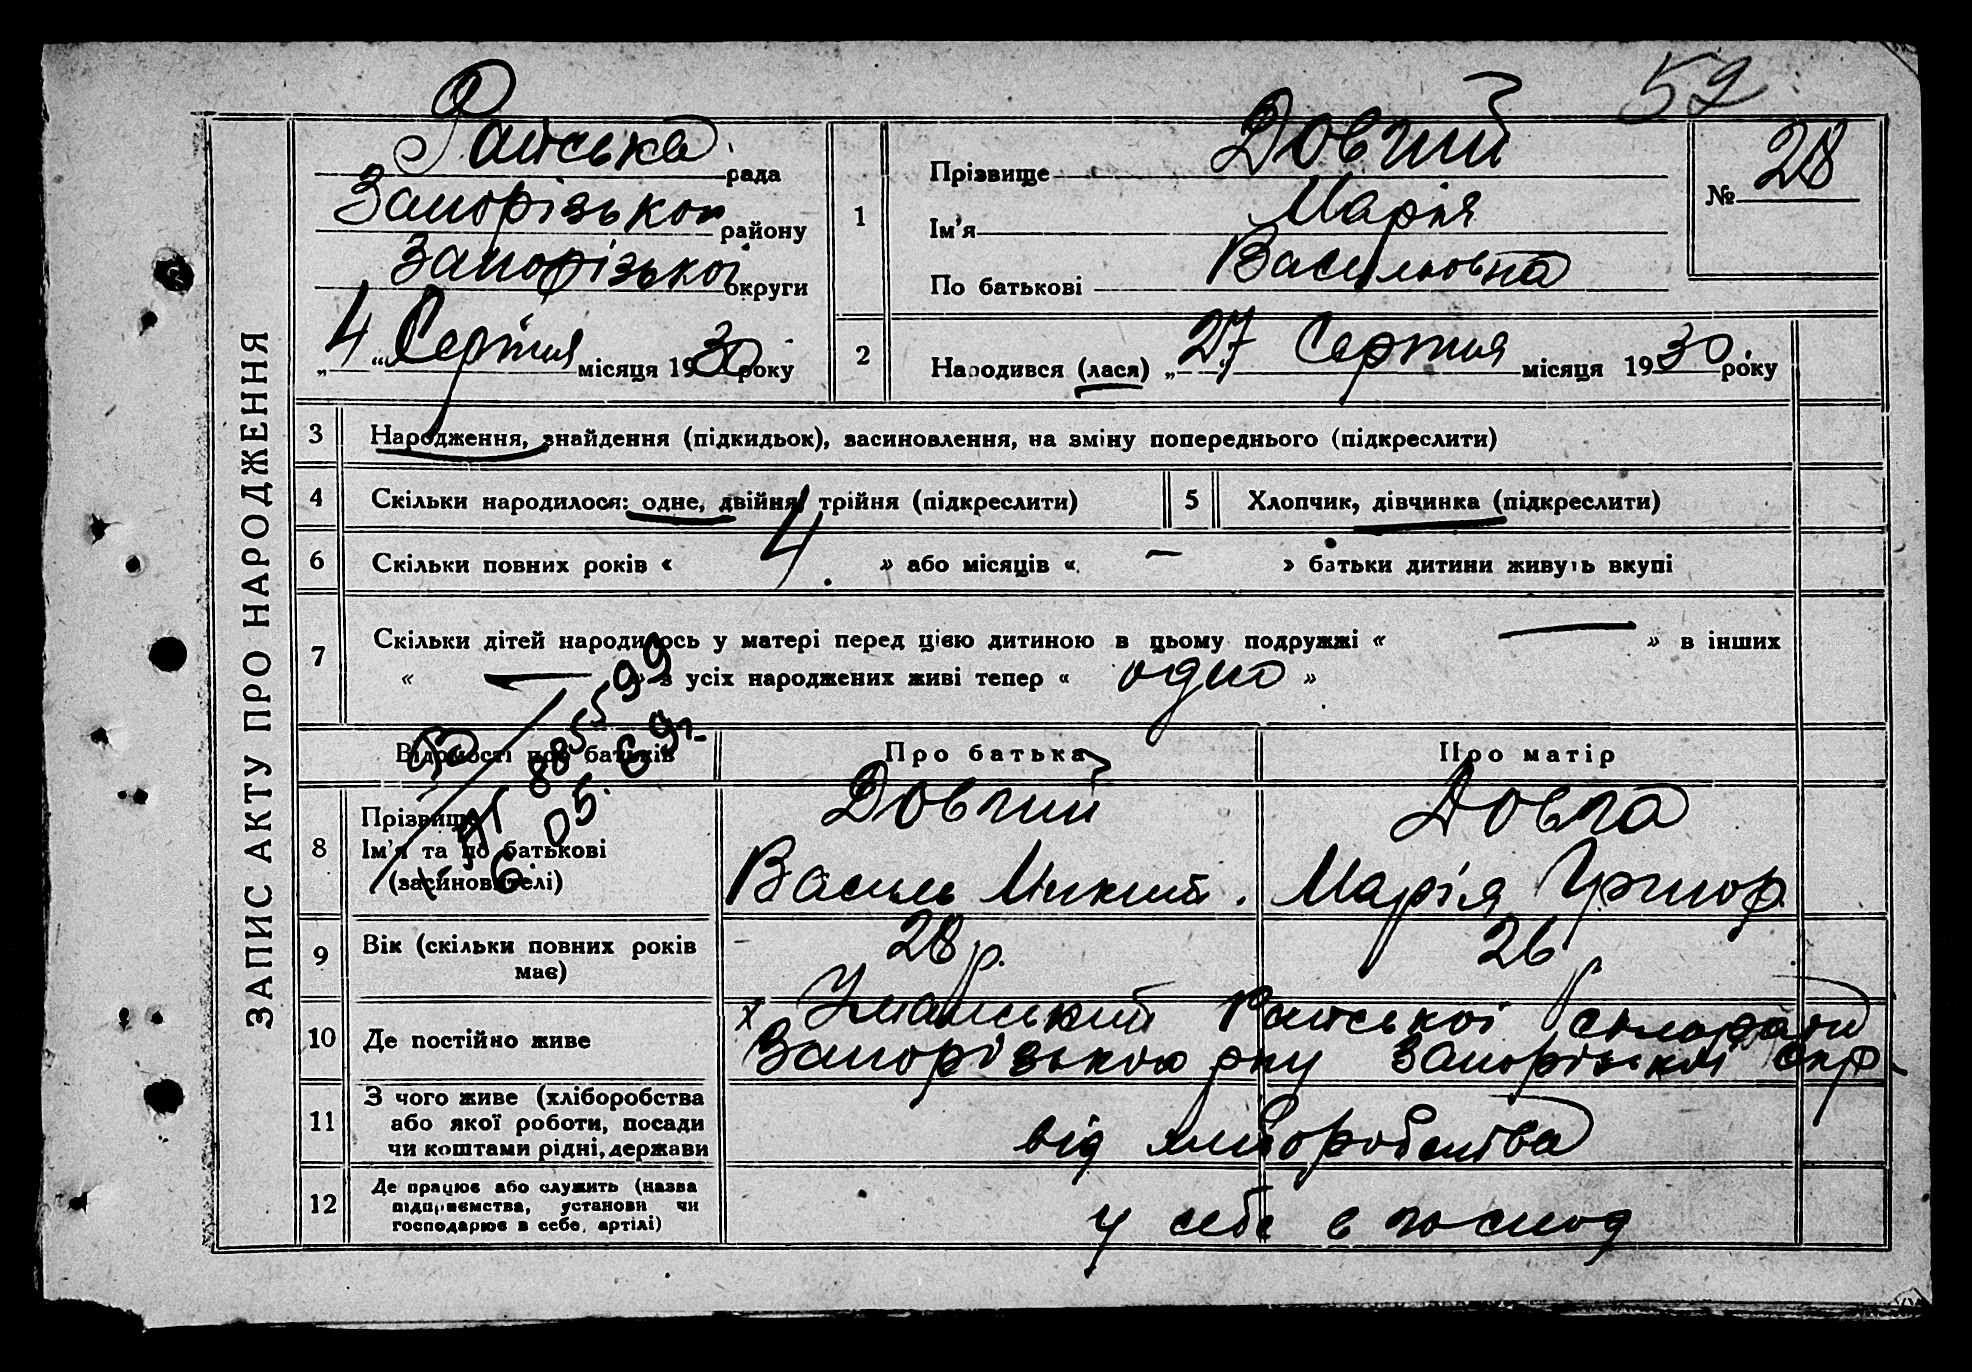 52
Райська рада
Запорізького району
Запорізької округи
„4“ Серпня місяця 1930 року
1
Прізвище Довгий
Ім'я Марія
По батькові Васильовна
№ 28
2
Народився (лася) „27“ Серпня місяця 1930 року
ЗАПИС АКТУ ПРО НАРОДЖЕННЯ
3 Народження, знайдення (підкидьок), засиновлення, на зміну попереднього (підкреслити)
4 Скільки народилося: одне, двійня, трійня (підкреслити)
5 Хлопчик, дівчинка (підкреслити)
6 Скільки повних років « 4. » або місяців « – » батьки дитини живуть вкупі
7 Скільки дітей народилось у матері перед цією дитиною в цьому подружжі « — » в інших
« — » з усіх народжених живі тепер « одно »
Відомості про батьків
Про батька
Про матір
8 Прізвище
Ім'я та по батькові
(засиновителі)
Довгий
Василь Микит.
Довга
Марія Григор.
9 Вік (скільки повних років
має)
28 р.
26 р.
10 Де постійно живе
х Уманський Райської сільради
Запорізького р-ну Запорізької окр.
11 З чого живе (хліборобства
або якої роботи, посади
чи коштами рідні, держави
від хліборобства
12 Де працює або служить (назва
підприємства, установи чи
господарює в себе, артілі)
у себе в господ